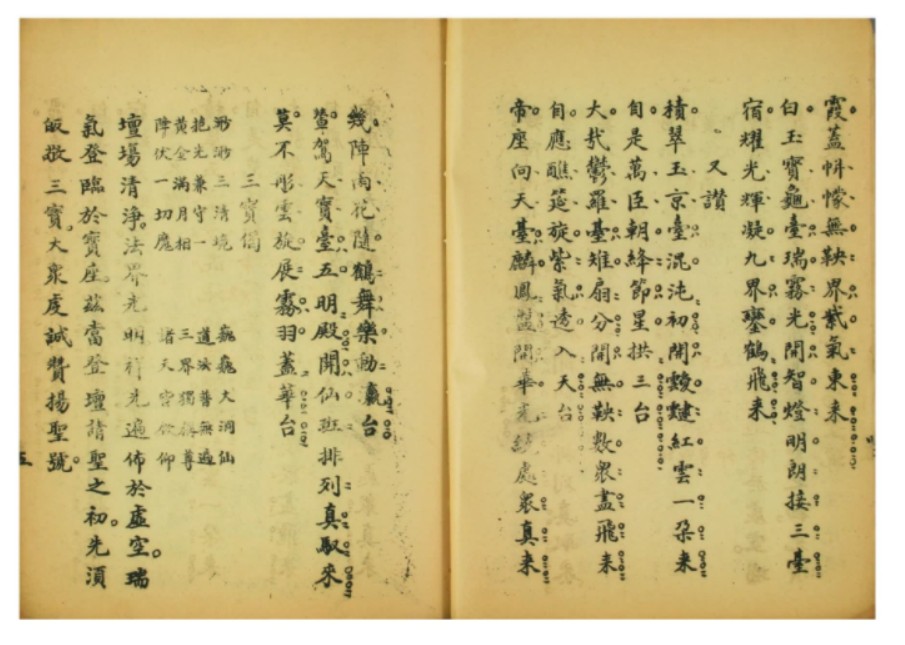 霞蓋幈幪無鞅界紫氣東来
白玉寶龜臺瑞霧光開智燈明朗接三臺
宿耀光輝凝九界鑾鶴飛来
又讃
積翠玉京臺混沌初開
紅雲一朶来
自是萬臣朝絳節星拱三台
大羅臺雉扇分開無鞅数衆盡飛来
自應醮筵旋紫氣透入天台
帝座向天臺麟鳳
開華光
處衆真来
幾陣雨花隨鶴舞樂動瀛台
駕天寶臺五明殿開仙班排列真馭来
莫不彤雲旋展霧羽蓋華台
三寶偈
渺渺三清境
巍巍大洞仙
抱元兼守一
道法普無邊
黄金滿月相
三界獨稱尊
降伏一切魔
諸天皆欽仰
壇場清淨。法界光明祥光遍佈於虛空。瑞
氣登臨於寶座兹當登壇請聖之初。先須
皈敬三寶。大衆虔誠贊揚聖號。
五